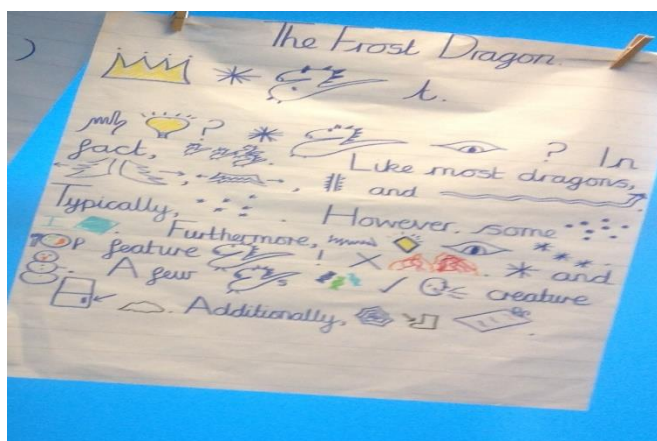 The Frost Dragon.
t.
? ? In
fact, . Like most dragons,
, , and
Typically, . However, some
Furthermore,
top feature ! and
. A few s creature
. Additionally, .